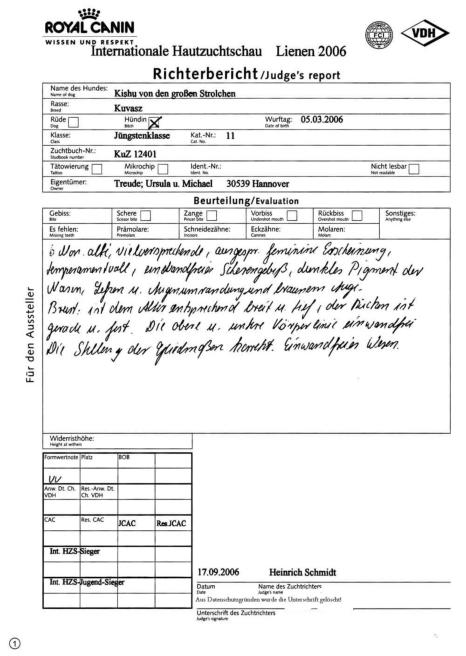 ROYAL CANIN
WISSEN UND RESPEKT
FCI
VDH
Internationale Hautzuchtschau Lienen 2006
Richterbericht/Judge's report
Name des Hundes: Kishu von den großen Strolchen
Name of dog
Rasse: Kuvasz
Breed
Rüde Hündin Wurftag: 05.03.2006
Dog Bitch Date of birth
Klasse: Jüngstenklasse Kat.-Nr.: 11
Class Cat. No.
Zuchtbuch-Nr.: KuZ 12401
Studbook number
Tätowierung Mikrochip Ident.-Nr.: Nicht lesbar
Tattoo Microchip Ident.-No. Not readable
Eigentümer: Treude; Ursula u. Michael 30539 Hannover
Owner
Beurteilung/Evaluation
Gebiss: Schere Zange Vorbiss Rückbiss Sonstiges:
Bite Scissor bite Pincer bite Undershot mouth Overshot mouth Anything else
Es fehlen: Prämolare: Schneidezähne: Eckzähne: Molaren:
Missing teeth Premolars Incisors Canines Molars
6 Mon. alt, vielversprechende, ausgespr. feminine Erscheinung,
temperamentvoll, einwandfreies Scherengebiß, dunkles Pigment der
Nasen, Lefzen u. Augenumrandung und braunem Auge.
Brust: ist dem Alter entsprechend breit u. tief, der Rücken ist
gerade u. fest. Die obere u. untere Körperlinie einwandfrei
Die Stellung der Gliedmaßen korrekt. Einwandfreies Wesen.
Für den Aussteller
Widerristhöhe:
Height at withers
Formwertnote Platz BOB
VV
Anw. Dt. Ch. VDH Res.-Anw. Dt. Ch. VDH
CAC Res. CAC JCAC Res.JCAC
Int. HZS-Sieger
Int. HZS-Jugend-Sieger
17.09.2006 Heinrich Schmidt
Datum Name des Zuchtrichters
Date Judge's name
Aus Datenschutzgründen wurde die Unterschrift gelöscht!
Unterschrift des Zuchtrichters
Judge's signature
1